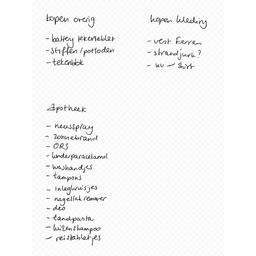 kopen overig
- battery tekentablet
- stiften / potloden
- tekenblok
kopen kleding
- vest
- strandjurk?
- uv - shirt
Apotheek
- neusspray
- zonnebrand
- ORS
- kinderparacetamol
- washandjes
- tampons
- inlegkruisjes
- nagellak remover
- deo
- tandpasta
- luizenshampoo
- reistabletjes